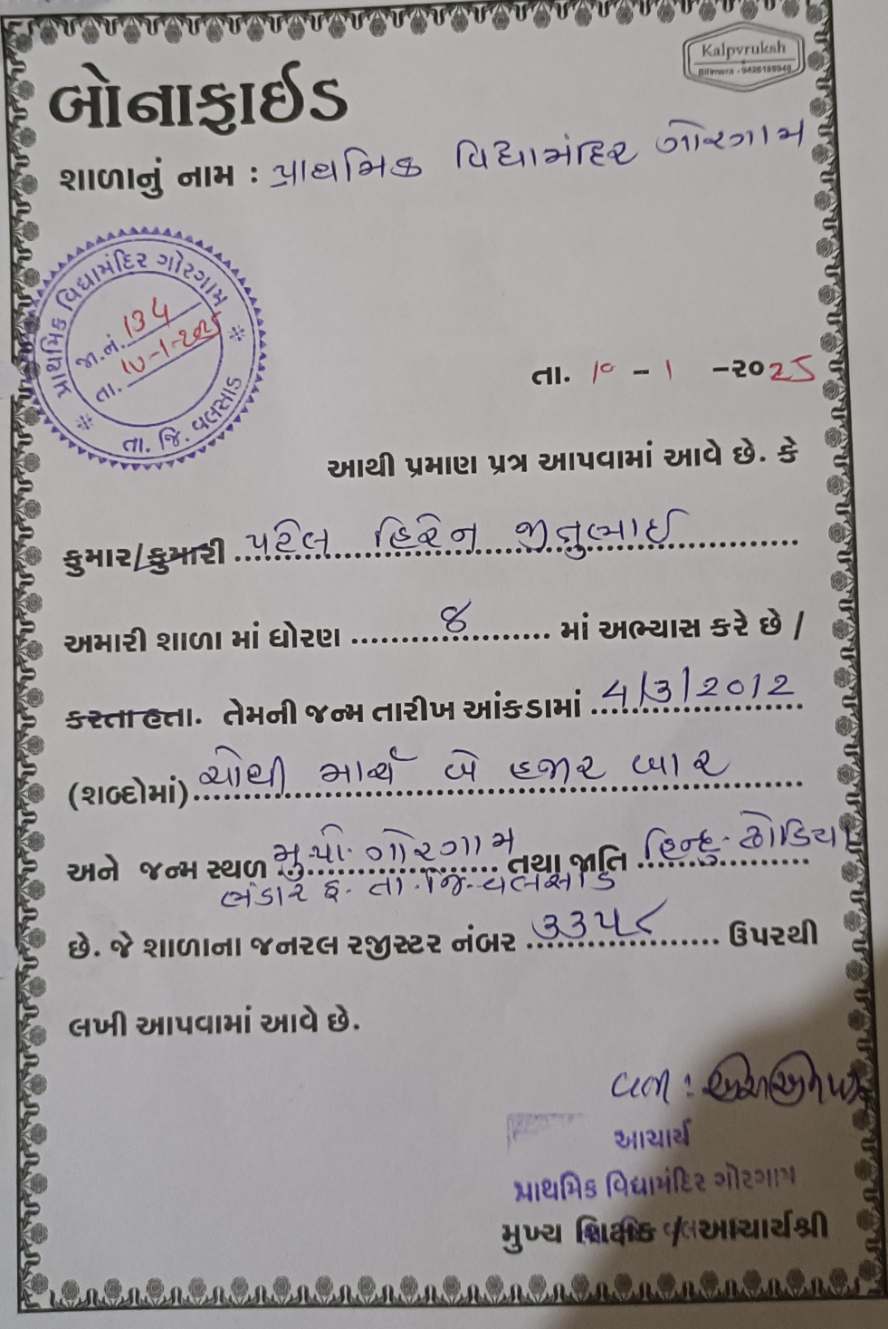 Kalpvruksh
Bilimora - 9426189946
બોનાફાઈડ
શાળાનું નામ : પ્રાથમિક વિદ્યામંદિર ગોરગામ
પ્રાથમિક વિદ્યામંદિર ગોરગામ
જા.નં. 134
તા. 10-1-2025
તા. જિ. વલસાડ
તા. 10 - 1 - ૨૦25
આથી પ્રમાણ પત્ર આપવામાં આવે છે. કે
કુમાર/કુમારી પટેલ હિરેન જીનુભાઈ
અમારી શાળા માં ધોરણ ૪ માં અભ્યાસ કરે છે /
કરતા હતા. તેમની જન્મ તારીખ આંકડામાં 4/3/2012
(શબ્દોમાં) ચોથી માર્ચ બે હજાર બાર
અને જન્મ સ્થળ મુ.પો. ગોરગામ તથા જાતિ હિન્દુ-ઢોડિયા
ભંડાર ફ. તા.જિ-વલસાડ
છે. જે શાળાના જનરલ રજીસ્ટર નંબર ૩૩૫૮ ઉપરથી
લખી આપવામાં આવે છે.
આચાર્ય
પ્રાથમિક વિદ્યામંદિર ગોરગામ
મુખ્ય શિક્ષક / આચાર્યશ્રી